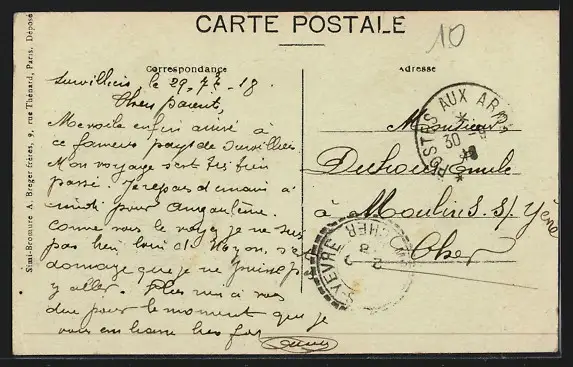 CARTE POSTALE
10
Correspondance
Adresse
Simi-Bromure A. Breger frères, 9, rue Thénard, Paris. Déposé
Survilliers le 29, 7 - 18.
Chers parents,
Me voila enfin arrivé à
ce fameux pays de Survilliers.
Mon voyage s'est très bien
passé. Je repars demain à
midi pour Angoulême.
comme vous le voyez je ne suis
pas bien loin de
domage que je ne puisse p
y aller. Plus rien à vous
dire pour le moment que je
vous embrasse bien fort
Monsieur
Émile
à Moulins S/ Yèvre
Cher
POSTES AUX AR
30
YEVRE
CHER